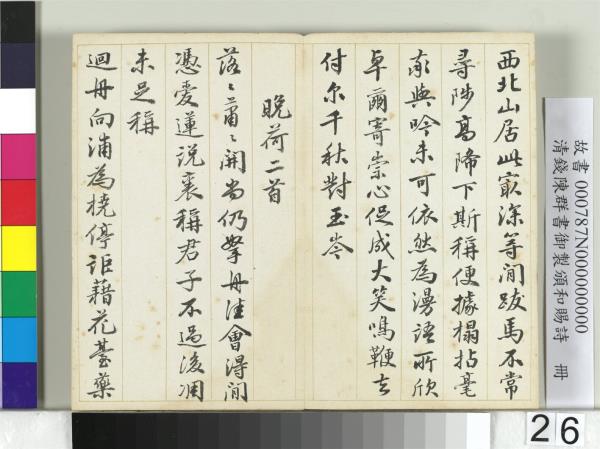 西北山居此最深等閒跋馬不常
尋陟高降下斯稱便據榻拈毫
亦與吟未可依然為漫語所欣
卓爾寄崇心促成大笑鳴鞭去
付尔千秋對玉岑
晚荷二首
落〻蕭〻開尚仍拏舟佳會得閒
憑愛蓮說裏稱君子不過後凋
未足稱
迴舟向浦為撓停詎藉花臺藥
故書 000787N000000000
清錢陳群書御製頒和賜詩 冊
26